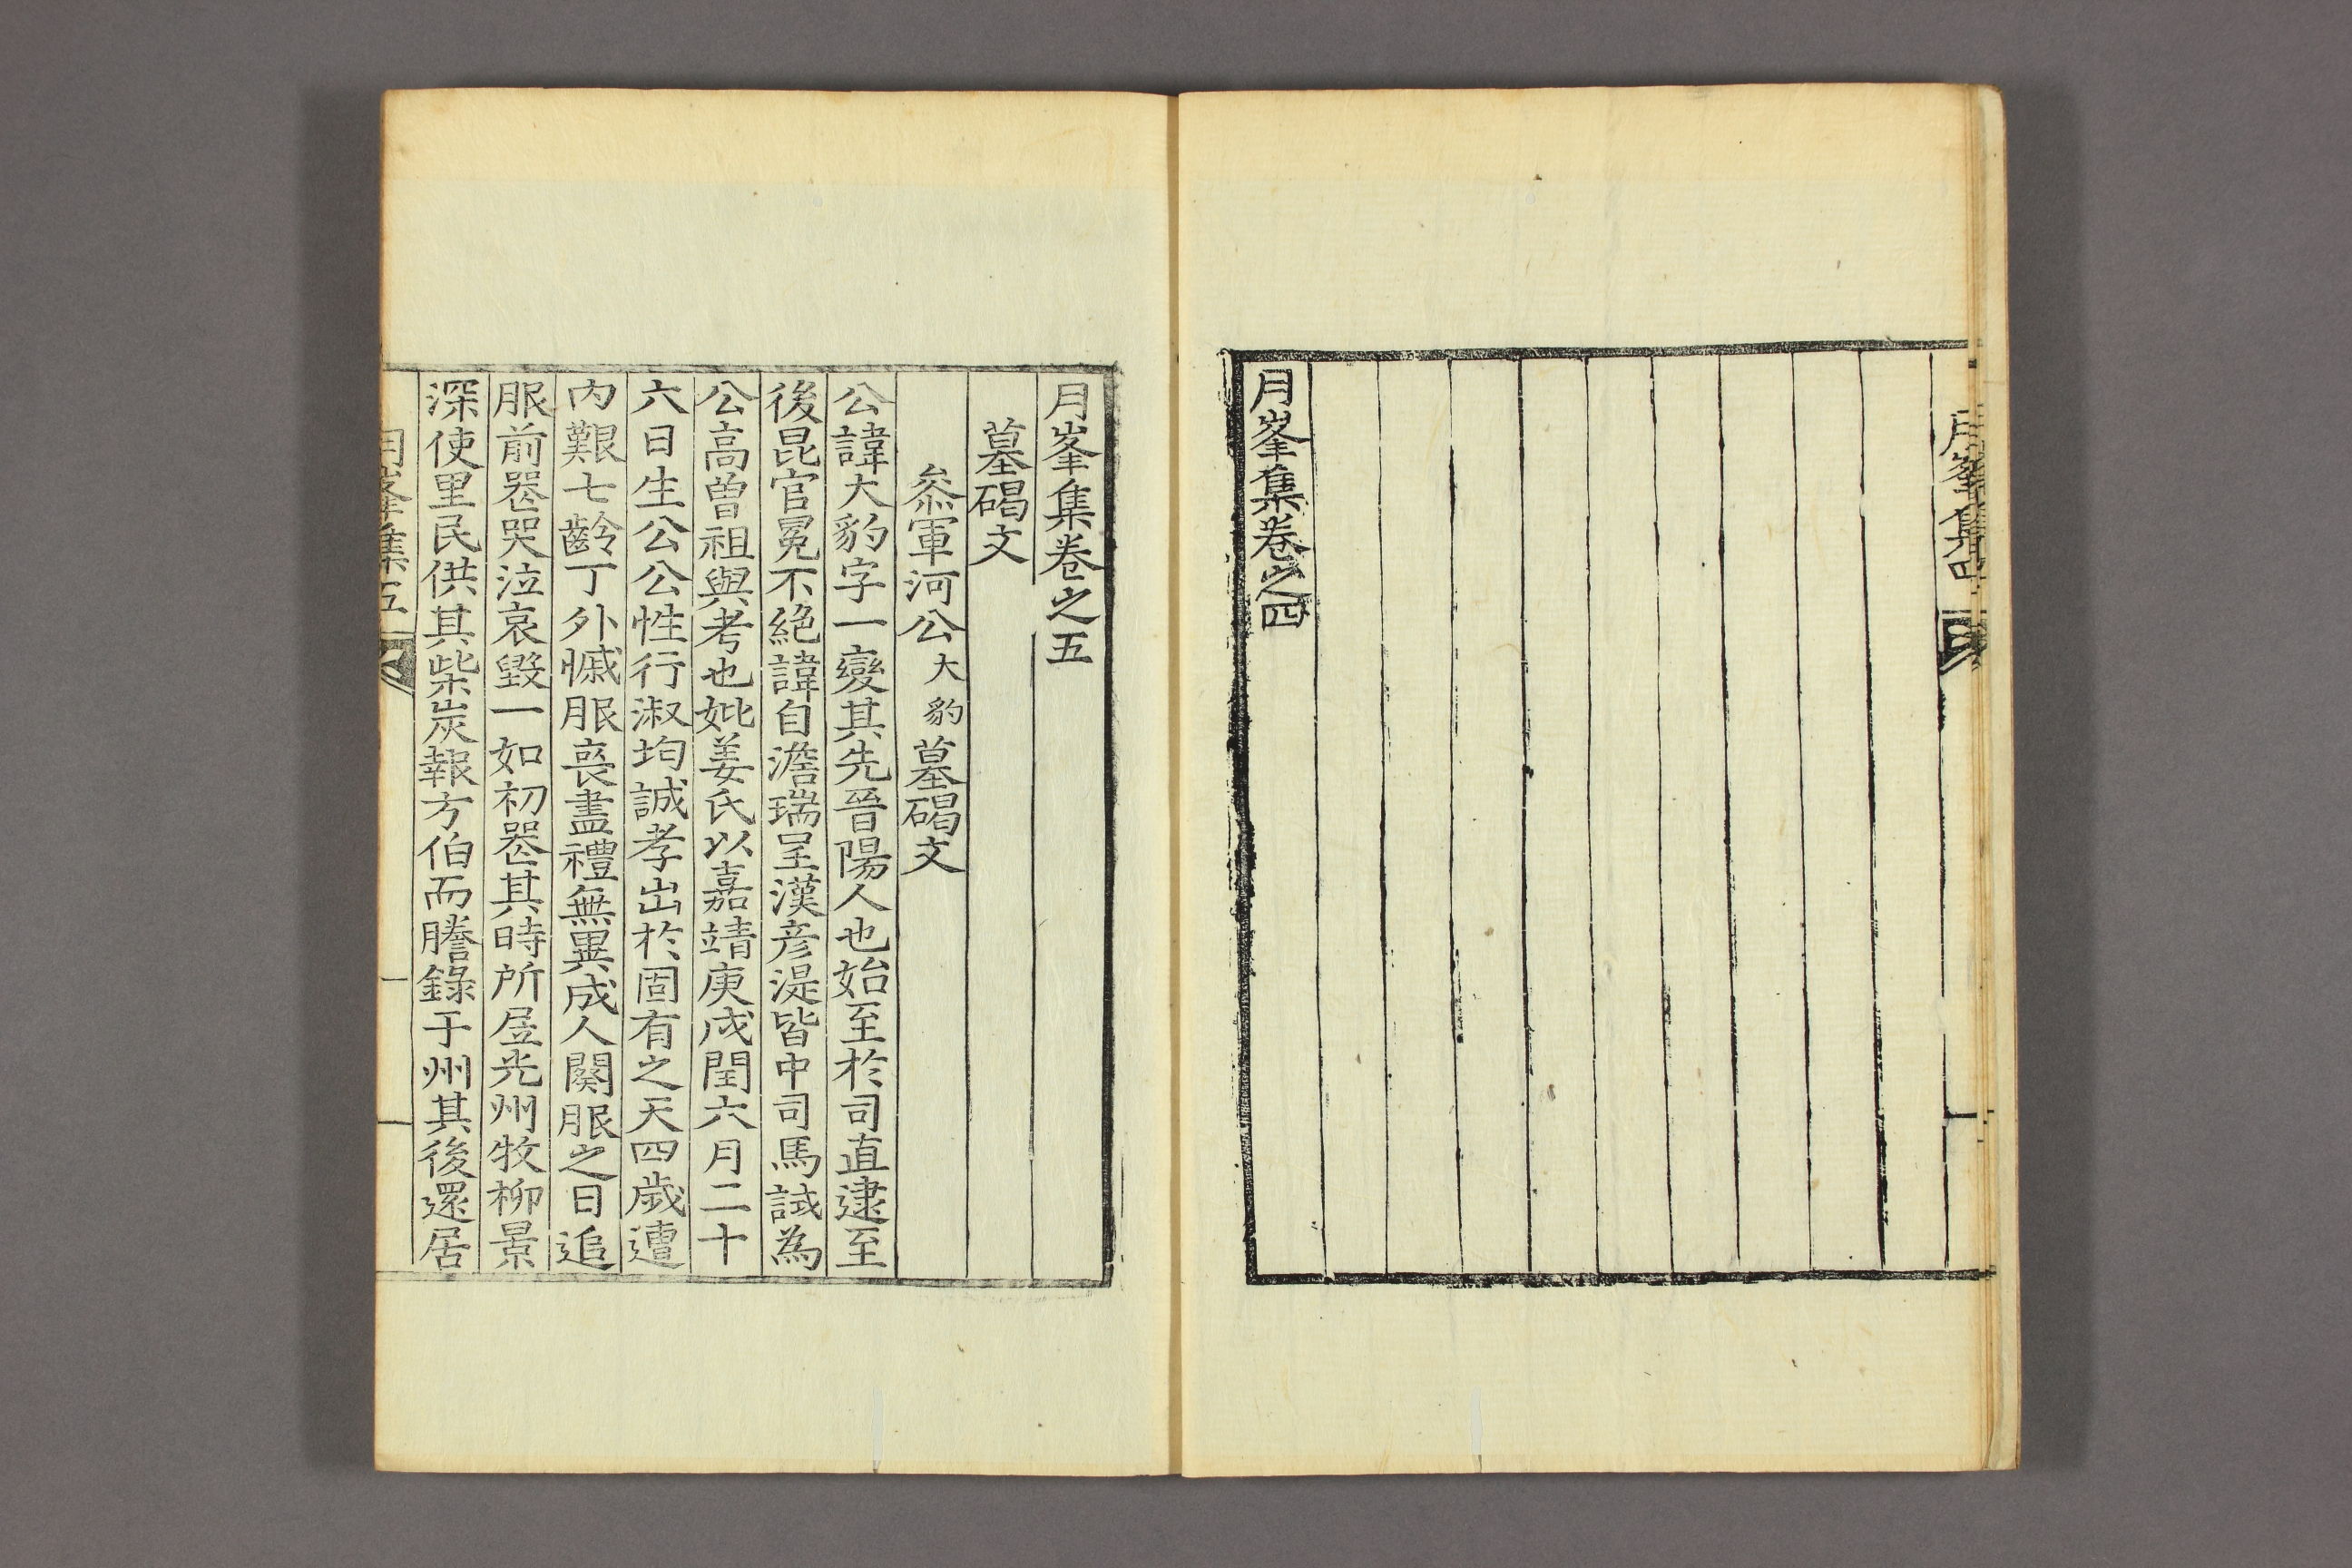 月峯集四
月峯集卷之四
月峯集卷之五
墓碣文
叅軍河公大豹墓碣文
公諱大豹字一變其先晉陽人也始至於司直逮至
後昆官冕不絶諱自澹瑞呈漢彦湜皆中司馬試為
公高曽祖與考也妣姜氏以嘉靖庚戌閏六月二十
六日生公公性行淑均誠孝出於固有之天四歲遭
内艱七齡丁外慽服喪盡禮無異成人闋服之日追
服前喪哭泣哀毀一如初喪其時所居光州牧柳景
深使里民供其柴炭報方伯而謄錄于州其後還居
月峯集五 一